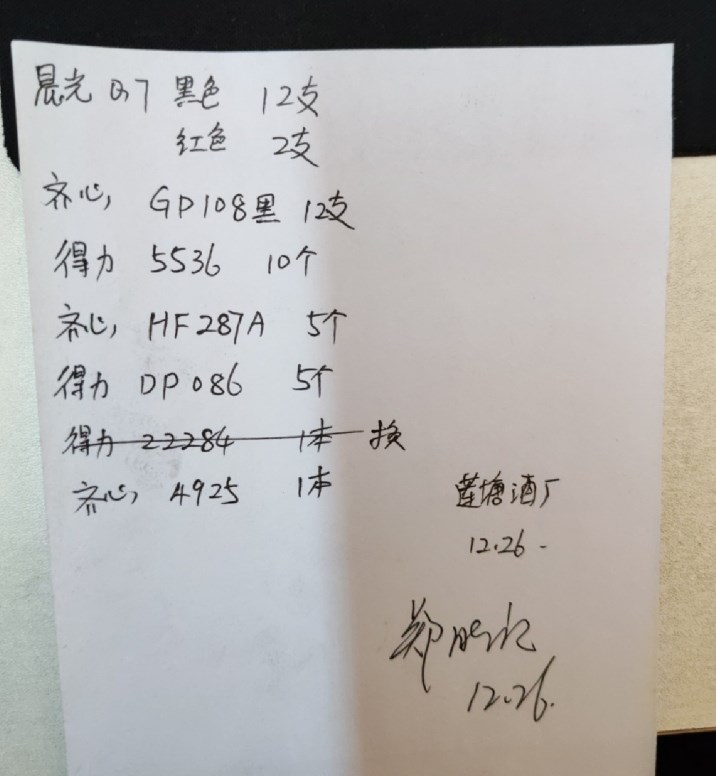 晨光 Q7 黑色 12支
红色 2支
齐心 GP108黑 12支
得力 5536 10个
齐心 HF287A 5个
得力 DP086 5个
得力 22284 1本 换
齐心 4925 1本
莲塘酒厂
12.26
郑
12.26.